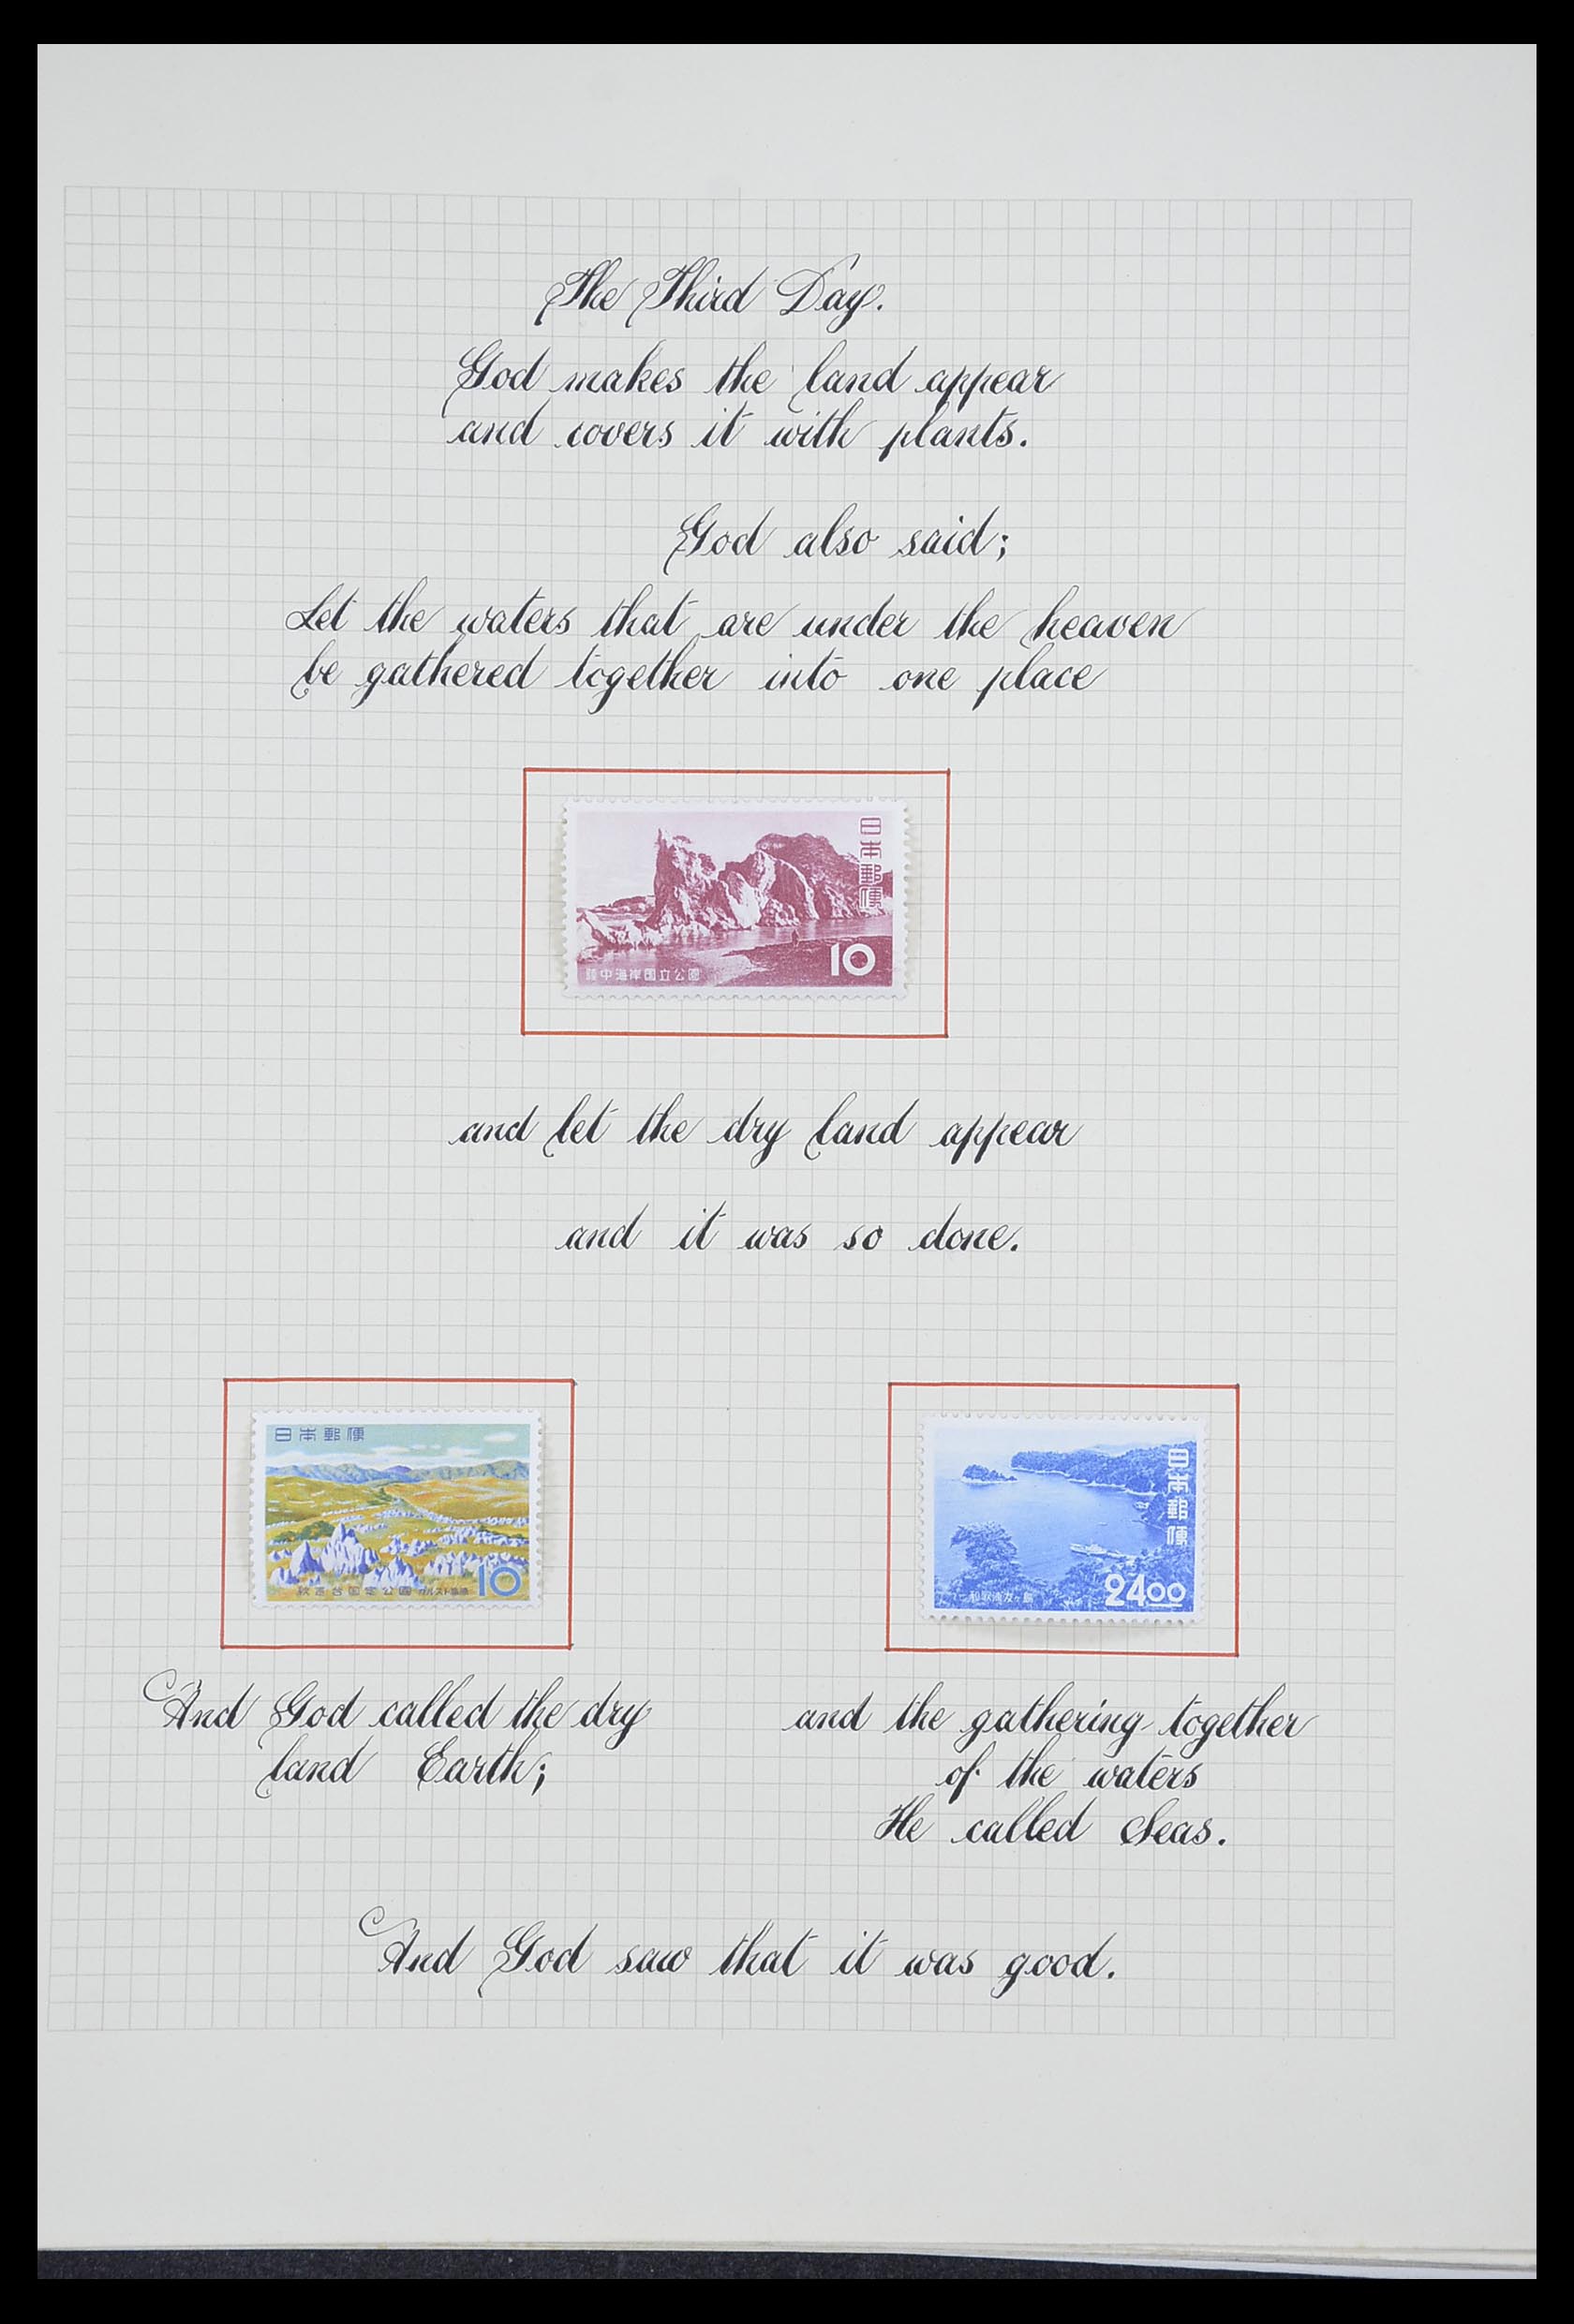 The Third Day.
God makes the land appear
and covers it with plants.
God also said;
Let the waters that are under the heaven
be gathered together into one place
日本郵便
10
陸中海岸国立公園
and let the dry land appear
and it was so done.
日本郵便
10
秋吉台国定公園
日本郵便
2400
And God called the dry
land Earth;
and the gathering together
of the waters
He called Seas.
And God saw that it was good.